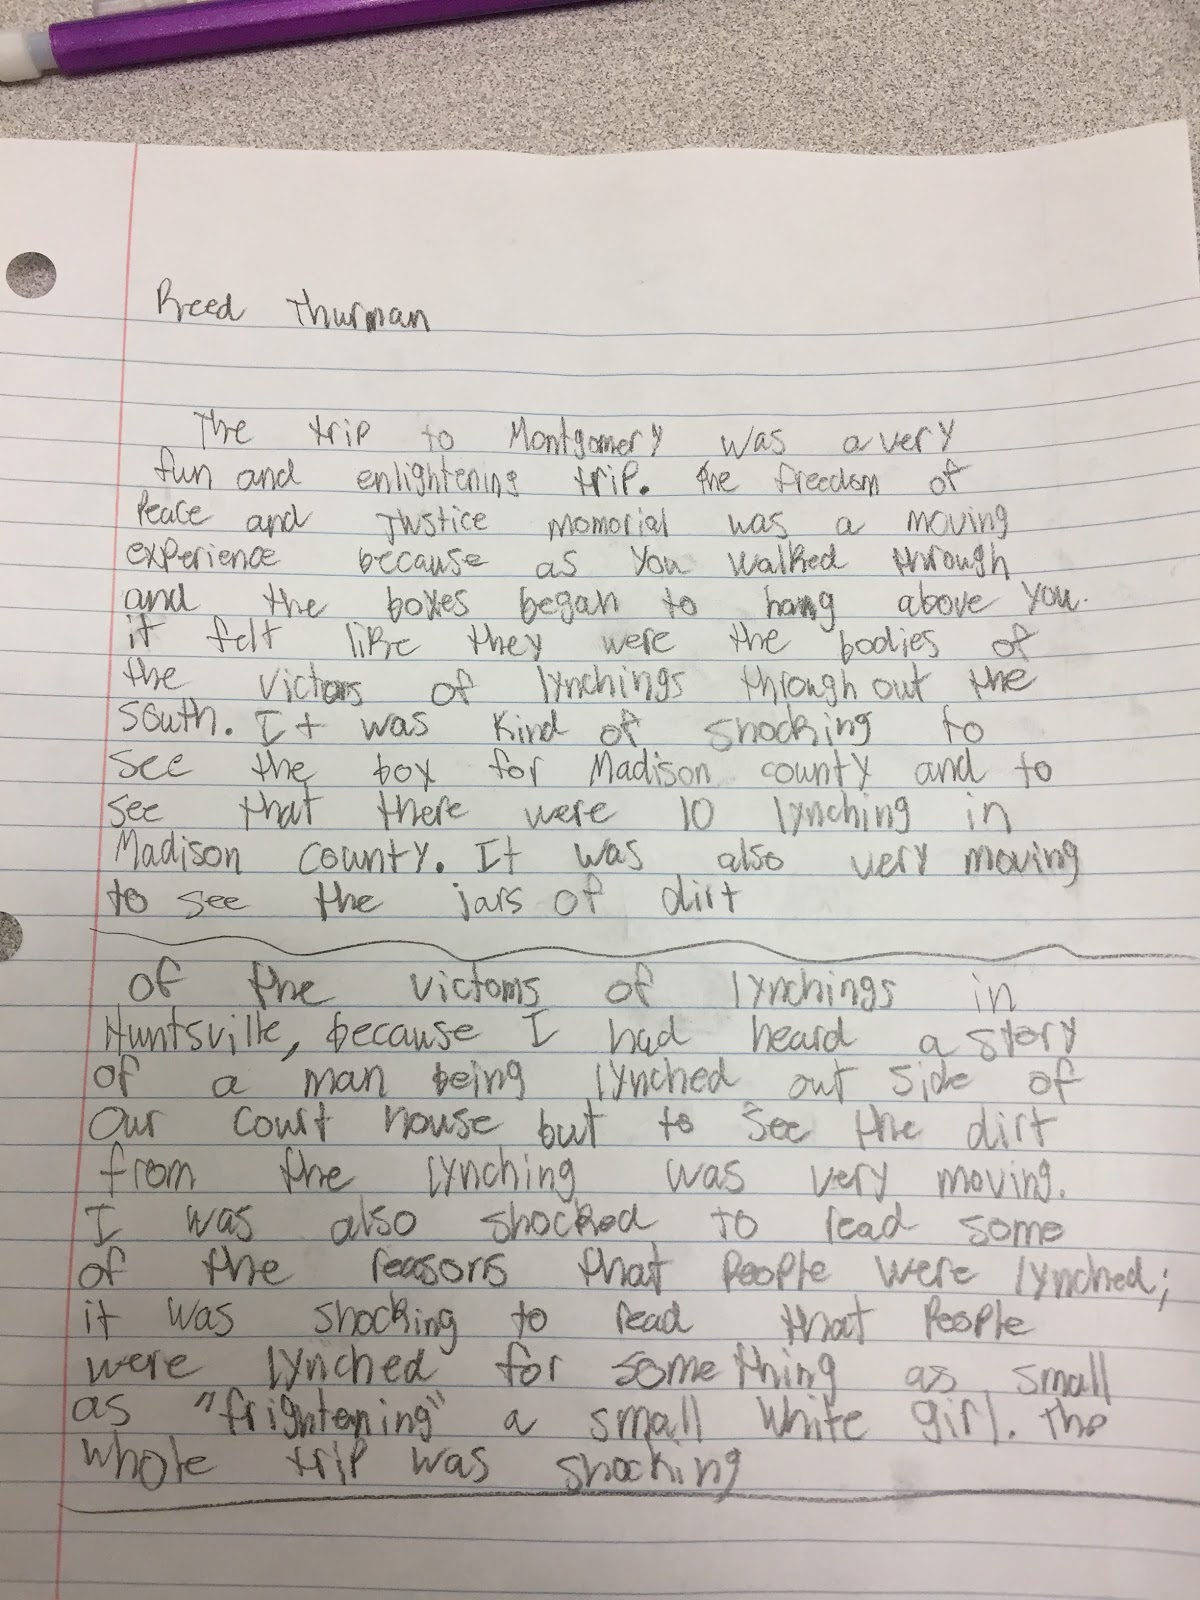 Reed Thurman
The trip to Montgomery was a very
fun and enlightening trip. The freedom of
Peace and Justice momorial was a moving
experience because as you walked through
and the boxes began to hang above you.
it felt like they were the bodies of
the victoms of lynchings through out the
south. It was kind of shocking to
see the box for Madison county and to
see that there were 10 lynching in
Madison County. It was also very moving
to see the jars of dirt
of the victoms of lynchings in
Huntsville, because I had heard a story
of a man being lynched out side of
our court house but to see the dirt
from the lynching was very moving.
I was also shocked to read some
of the reasons that people were lynched;
it was shocking to read that people
were lynched for something as small
as "frightening" a small white girl. The
whole trip was shocking